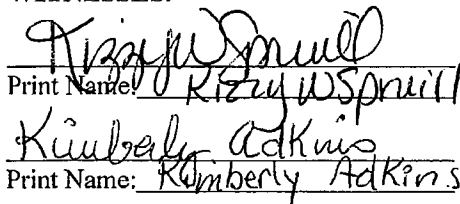 WITNESSES:
Kizzy W Spruill
Print Name: Kizzy W Spruill
Kimberly Adkins
Print Name: Kimberly Adkins